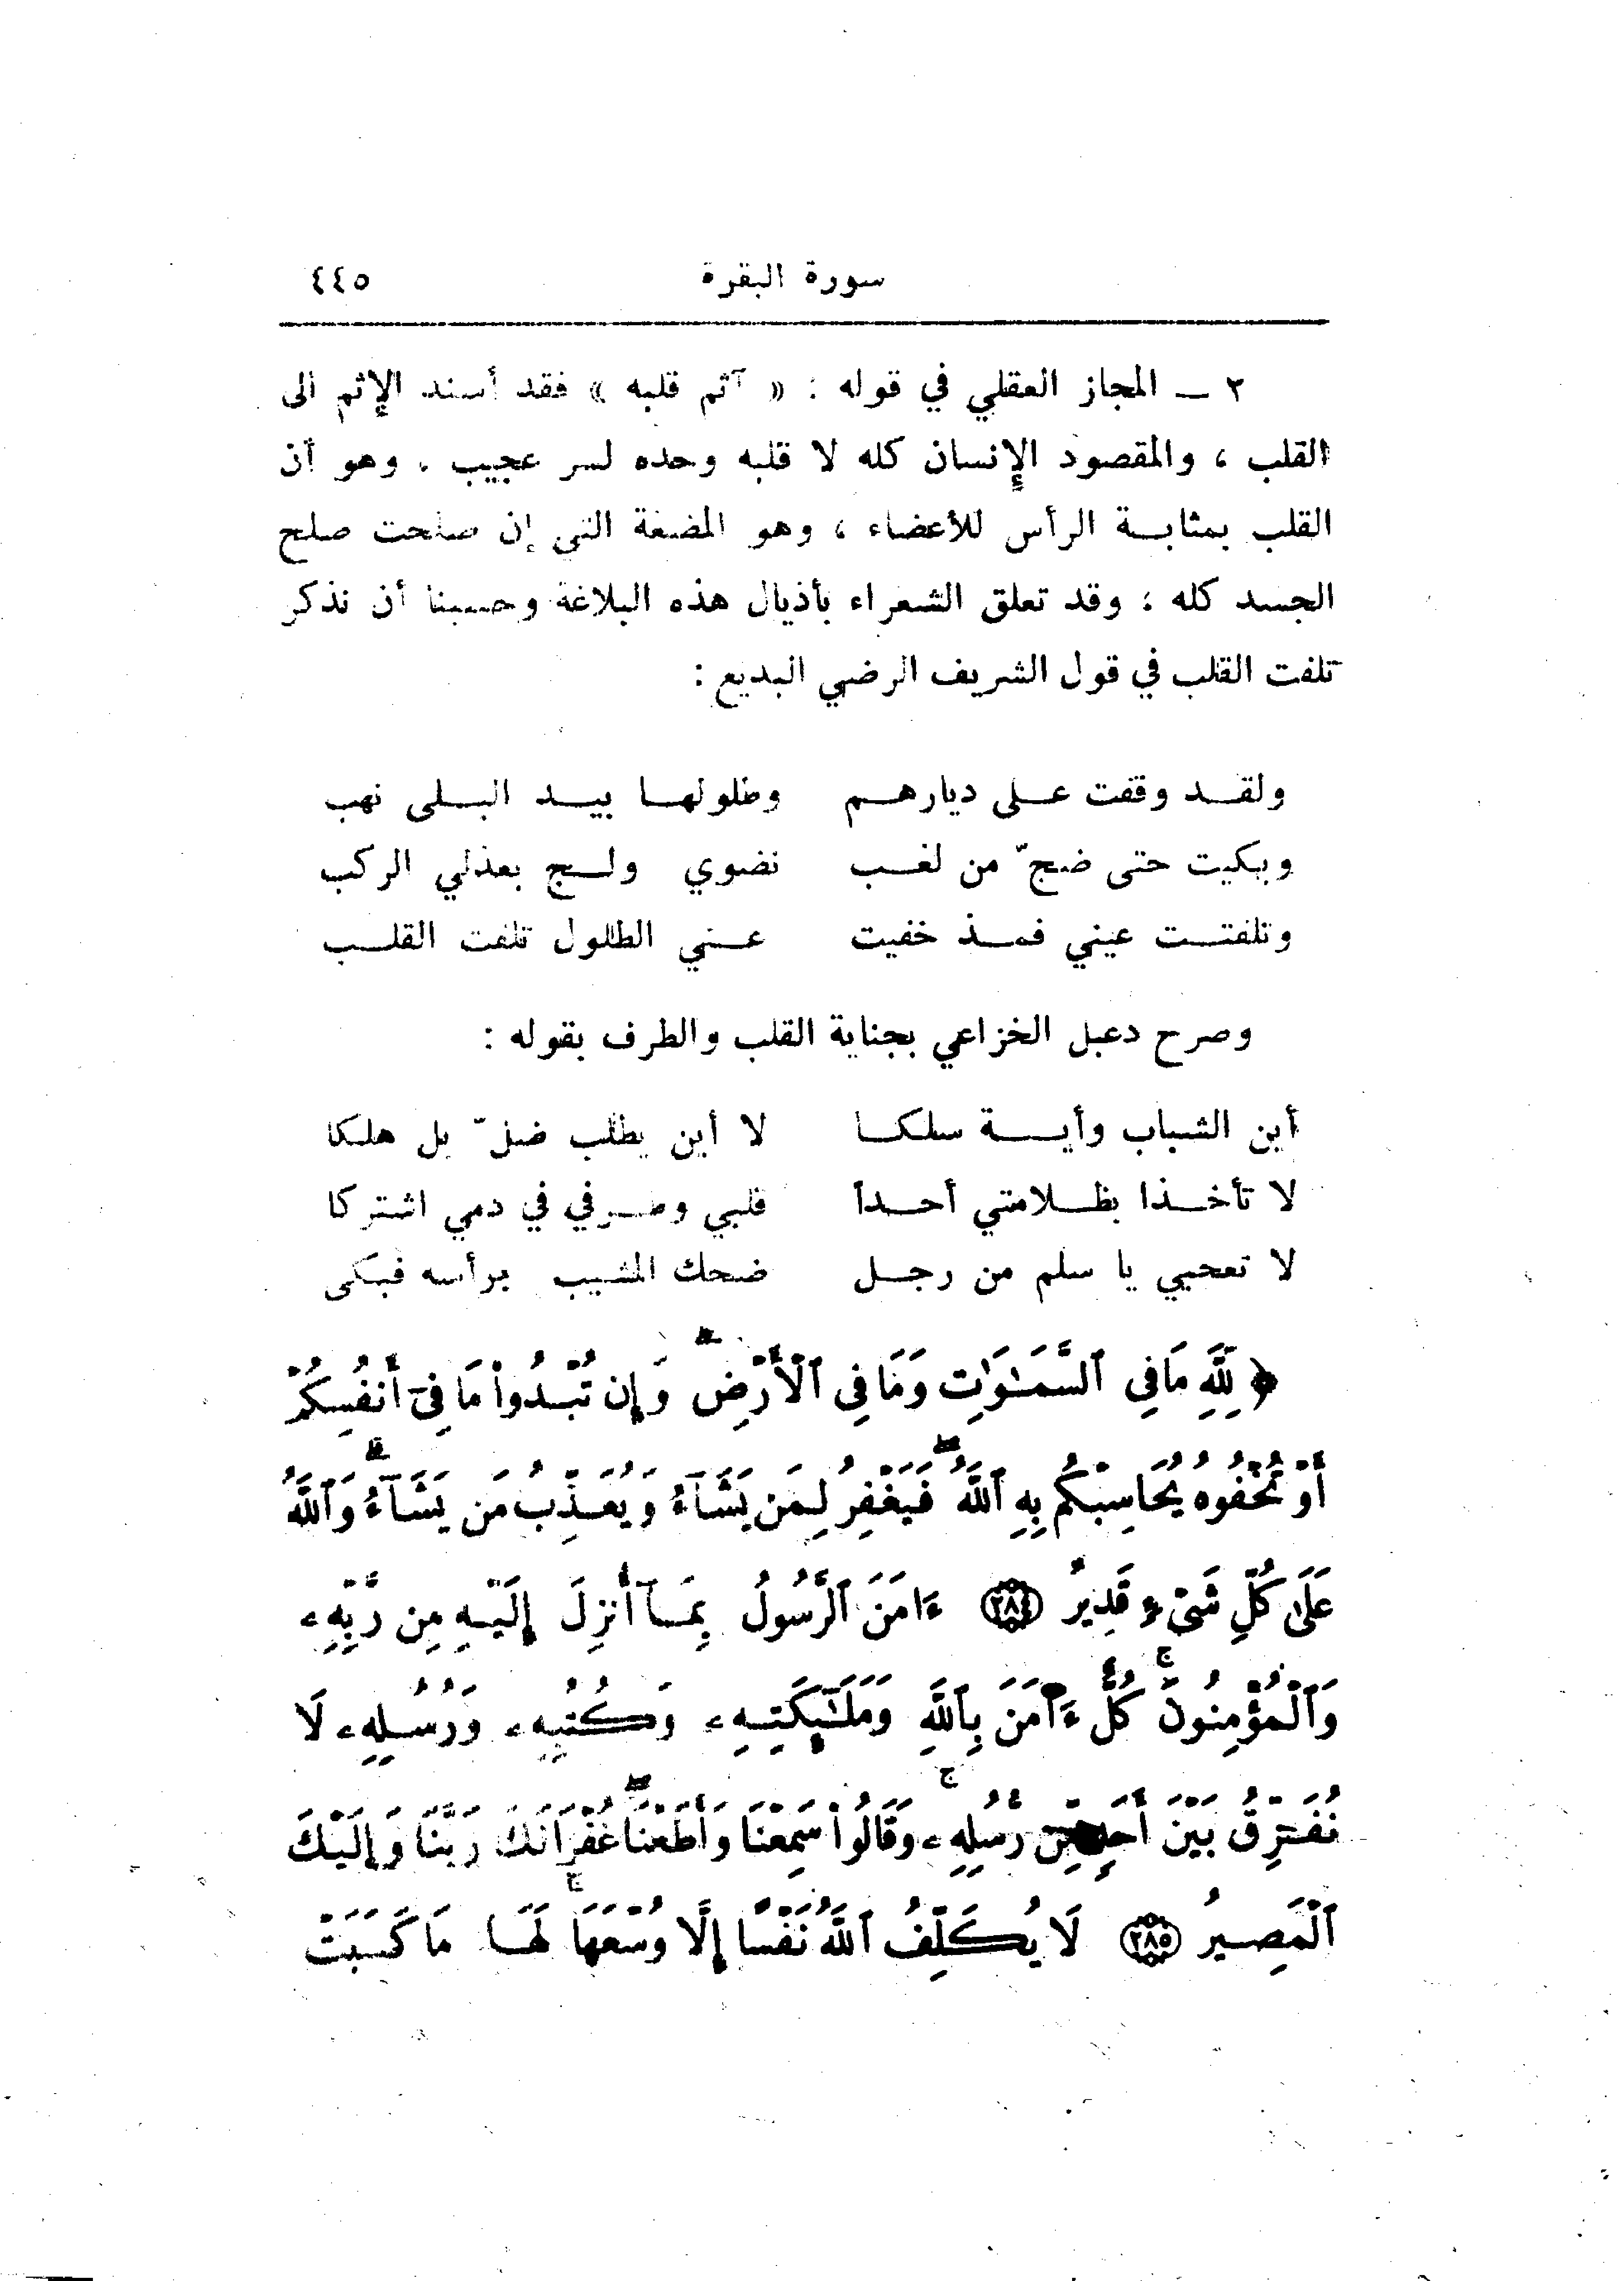 سورة البقرة ٤٤٥
٢ ــ المجاز العقلي في قوله : « آثم قلبه » فقد أسند الإثم الى
القلب ، والمقصود الإنسان كله لا قلبه وحده لسر عجيب . وهو أن
القلب بمثابــة الرأس للأعضاء ، وهو المضغة التي إن صلحت صلح
الجسد كله ؛ وقد تعلق الشعراء بأذيال هذه البلاغة وحسبنا أن نذكر
تلفت القلب في قول الشريف الرضي البديع :
ولقــد وقفت علــى ديارهــم وطلولهــا بيــد البــلى نهب
وبكيت حتى ضجّ من لغــب نضوي ولــج بعذلي الركب
وتلفتــت عيني فمــذ خفيت عــني الطلول تلفت القلــب
وصرح دعبل الخزاعي بجناية القلب والطرف بقوله :
أين الشباب وأيــة سلكــا لا أين يطلب ضلّ بل هلكا
لا تأخــذا بظــلامتي أحــداً قلبي وطــرفي في دمي اشتركا
لا تعجبي يا سلم من رجــل ضحك المشيب برأسه فبكى
﴿ لِلَّهِ مَا فِي ٱلسَّمَـٰوَٰتِ وَمَا فِي ٱلْأَرْضِ ۗ وَإِن تُبْدُوا۟ مَا فِىٓ أَنفُسِكُمْ
أَوْ تُخْفُوهُ يُحَاسِبْكُم بِهِ ٱللَّهُ ۖ فَيَغْفِرُ لِمَن يَشَآءُ وَيُعَذِّبُ مَن يَشَآءُ ۗ وَٱللَّهُ
عَلَىٰ كُلِّ شَىْءٍ قَدِيرٌ ﴿٢٨٤﴾ ءَامَنَ ٱلرَّسُولُ بِمَآ أُنزِلَ إِلَيْهِ مِن رَّبِّهِۦ
وَٱلْمُؤْمِنُونَ ۚ كُلٌّ ءَامَنَ بِٱللَّهِ وَمَلَـٰٓئِكَتِهِۦ وَكُتُبِهِۦ وَرُسُلِهِۦ لَا
نُفَرِّقُ بَيْنَ أَحَدٍ مِّن رُّسُلِهِۦ ۚ وَقَالُوا۟ سَمِعْنَا وَأَطَعْنَا ۖ غُفْرَانَكَ رَبَّنَا وَإِلَيْكَ
ٱلْمَصِيرُ ﴿٢٨٥﴾ لَا يُكَلِّفُ ٱللَّهُ نَفْسًا إِلَّا وُسْعَهَا ۚ لَهَا مَا كَسَبَتْ